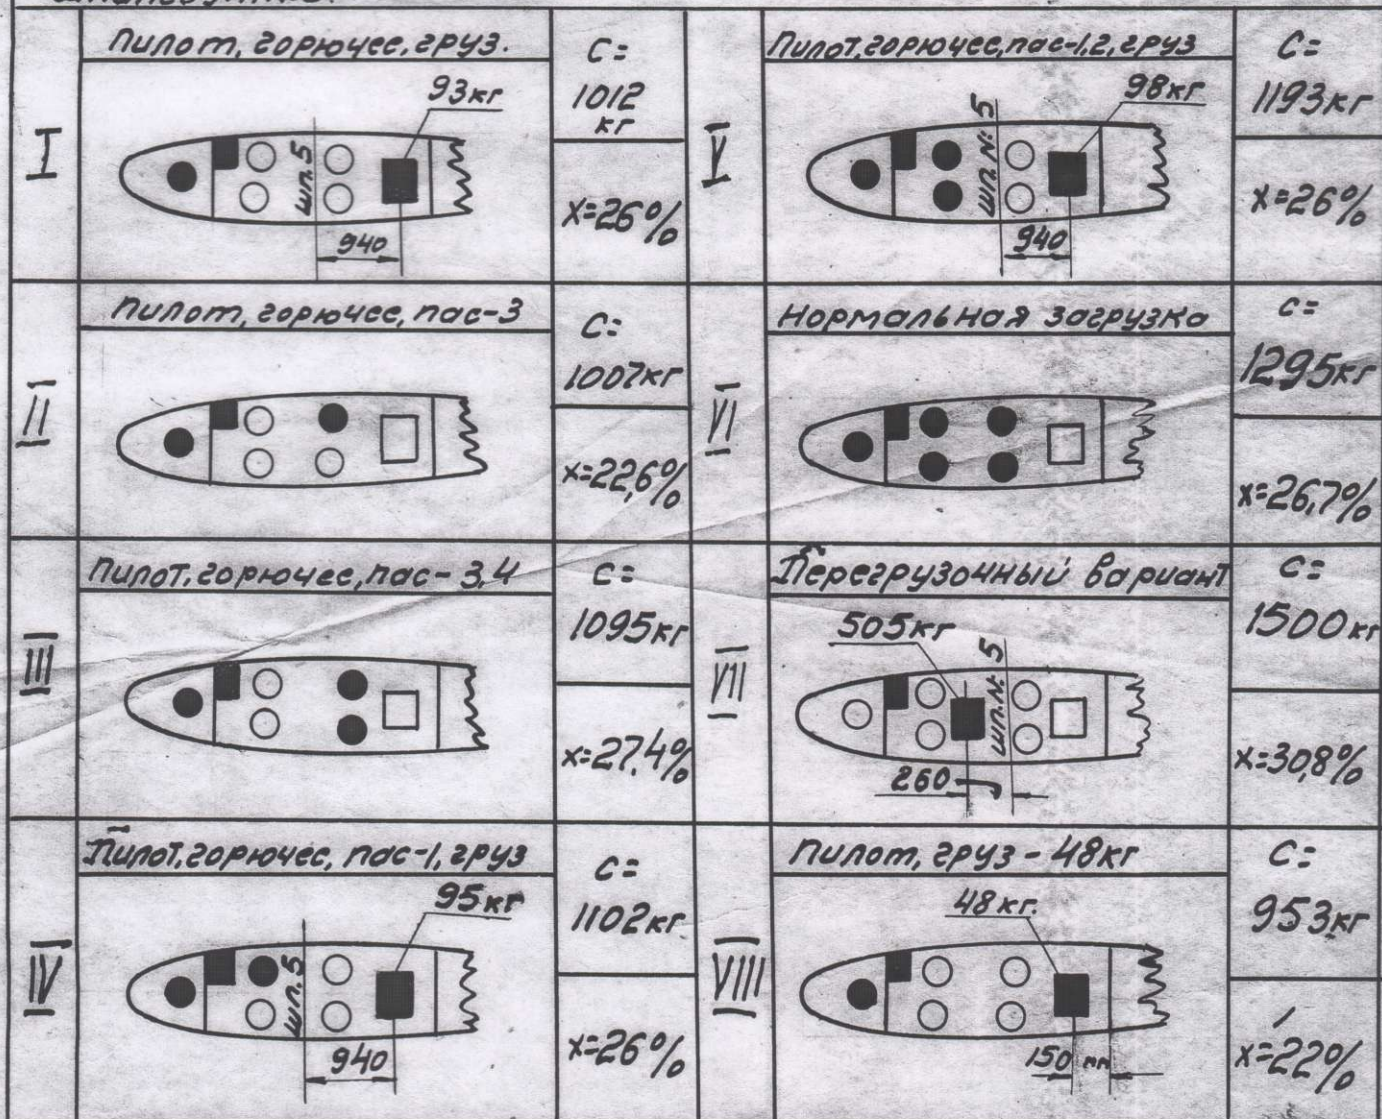 I
Пилот, горючее, груз.
93кг
шп. 5
940
С=
1012
кг
х=26%
II
Пилот, горючее, пас-3
С=
1007кг
х=22,6%
III
Пилот, горючее, пас-3,4
С=
1095кг
х=27,4%
IV
Пилот, горючее, пас-1, груз
95кг
шп. 5
940
С=
1102кг
х=26%
V
Пилот, горючее, пас-1,2, груз
98кг
шп. № 5
940
С=
1193кг
х=26%
VI
Нормальная загрузка
С=
1295кг
х=26,7%
VII
Перегрузочный вариант
505кг
шп. № 5
260
С=
1500кг
х=30,8%
VIII
Пилот, груз - 48кг
48кг.
150 мм
С=
953кг
х=22%